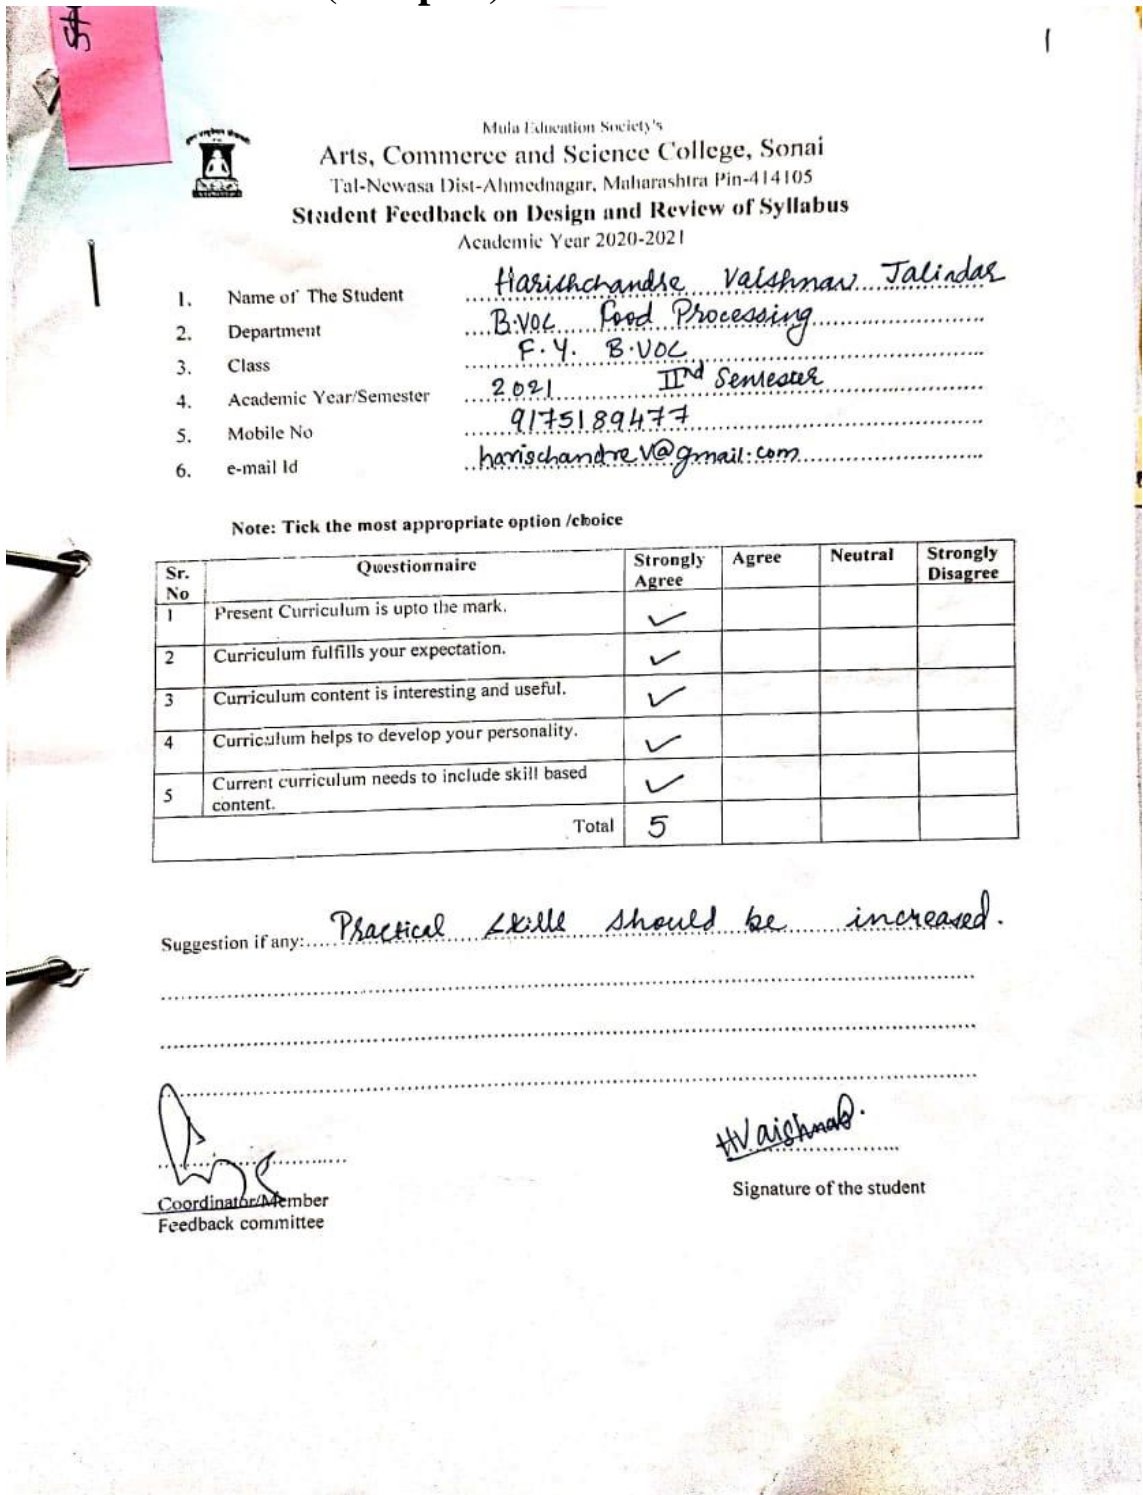 1
Mula Education Society's
Arts, Commerce and Science College, Sonai
Tal-Newasa Dist-Ahmednagar, Maharashtra Pin-414105
Student Feedback on Design and Review of Syllabus
Academic Year 2020-2021
1. Name of The Student Harishchandre Vaishnav Jalindar
2. Department B.VOC Food Processing
3. Class F.Y. B.VOC
4. Academic Year/Semester 2021 IInd Semester
5. Mobile No 9175189477
6. e-mail Id harischandreV@gmail.com
Note: Tick the most appropriate option /choice
Sr. No Questionnaire Strongly Agree Agree Neutral Strongly Disagree
1 Present Curriculum is upto the mark. ✓
2 Curriculum fulfills your expectation. ✓
3 Curriculum content is interesting and useful. ✓
4 Curriculum helps to develop your personality. ✓
5 Current curriculum needs to include skill based ✓
content.
Total 5
Suggestion if any:.... Practical skills should be increased.
HVaishnav.
Coordinator/Member
Feedback committee
Signature of the student